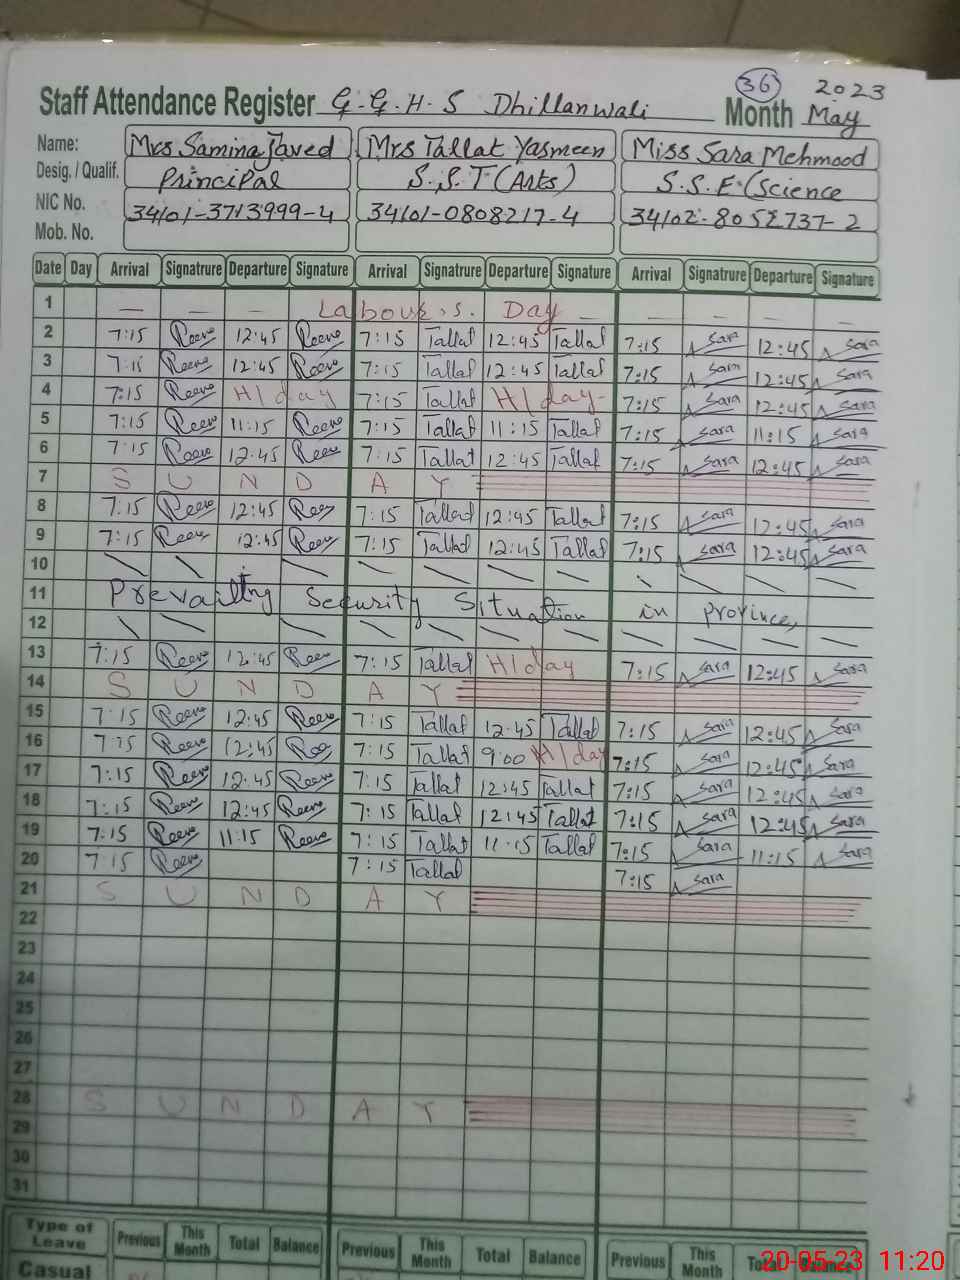 36 2023
Staff Attendance Register G.G.H.S Dhillanwali Month May
Name: Mrs Samina Javed Mrs Tallat Yasmeen Miss Sara Mehmood
Desig. / Qualif. Principal S.S.T (Arts) S.S.E (Science
NIC No. 34101-3713999-4 34101-0808217-4 34102-8052737-2
Mob. No.
Date Day Arrival Signatrure Departure Signature Arrival Signatrure Departure Signature Arrival Signatrure Departure Signature
1 — — — Labour,s. Day — — — — —
2 7:15 12:45 7:15 Tallat 12:45 Tallat 7:15 Sara 12:45 Sara
3 7:15 12:45 7:15 Tallat 12:45 Tallat 7:15 Sara 12:45 Sara
4 7:15 H/day 7:15 Tallat H/day 7:15 Sara 12:45 Sara
5 7:15 11:15 7:15 Tallat 11:15 Tallat 7:15 Sara 11:15 Sara
6 7:15 12:45 7:15 Tallat 12:45 Tallat 7:15 Sara 12:45 Sara
7 S U N D A Y
8 7:15 12:45 7:15 Tallat 12:45 Tallat 7:15 Sara 12:45 Sara
9 7:15 12:45 7:15 Tallat 12:45 Tallat 7:15 Sara 12:45 Sara
10
11 Prevailing Security Situation in province,
12
13 7:15 12:45 7:15 Tallat H/day 7:15 Sara 12:45 Sara
14 S U N D A Y
15 7:15 12:45 7:15 Tallat 12:45 Tallat 7:15 Sara 12:45 Sara
16 7:15 12:45 7:15 Tallat 9:00 H/day 7:15 Sara 12:45 Sara
17 7:15 12:45 7:15 Tallat 12:45 Tallat 7:15 Sara 12:45 Sara
18 7:15 12:45 7:15 Tallat 12:45 Tallat 7:15 Sara 12:45 Sara
19 7:15 11:15 7:15 Tallat 11:15 Tallat 7:15 Sara 11:15 Sara
20 7:15 7:15 Tallat 7:15 Sara
21 S U N D A Y
22
23
24
25
26
27
28 S U N D A Y
29
30
31
Type of Leave Previous This Month Total Balance Previous This Month Total Balance Previous This Month Total Balance
Casual
20-05-23 11:20